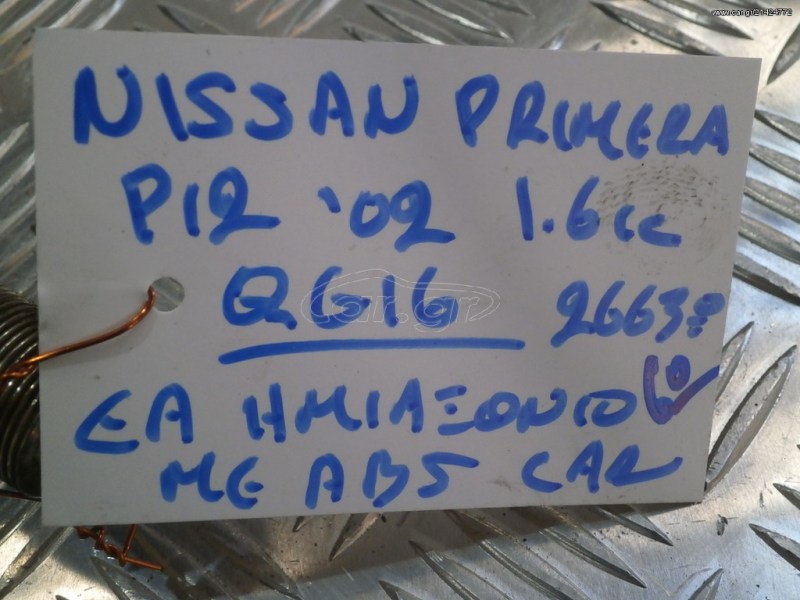 www.car.gr/21424772
NISSAN PRIMERA
P12 '02 1.6cc
QG16 2663
car.gr
ΕΑ ΗΜΙΑΞΟΝΙΟ
ΜΕ ABS CAR